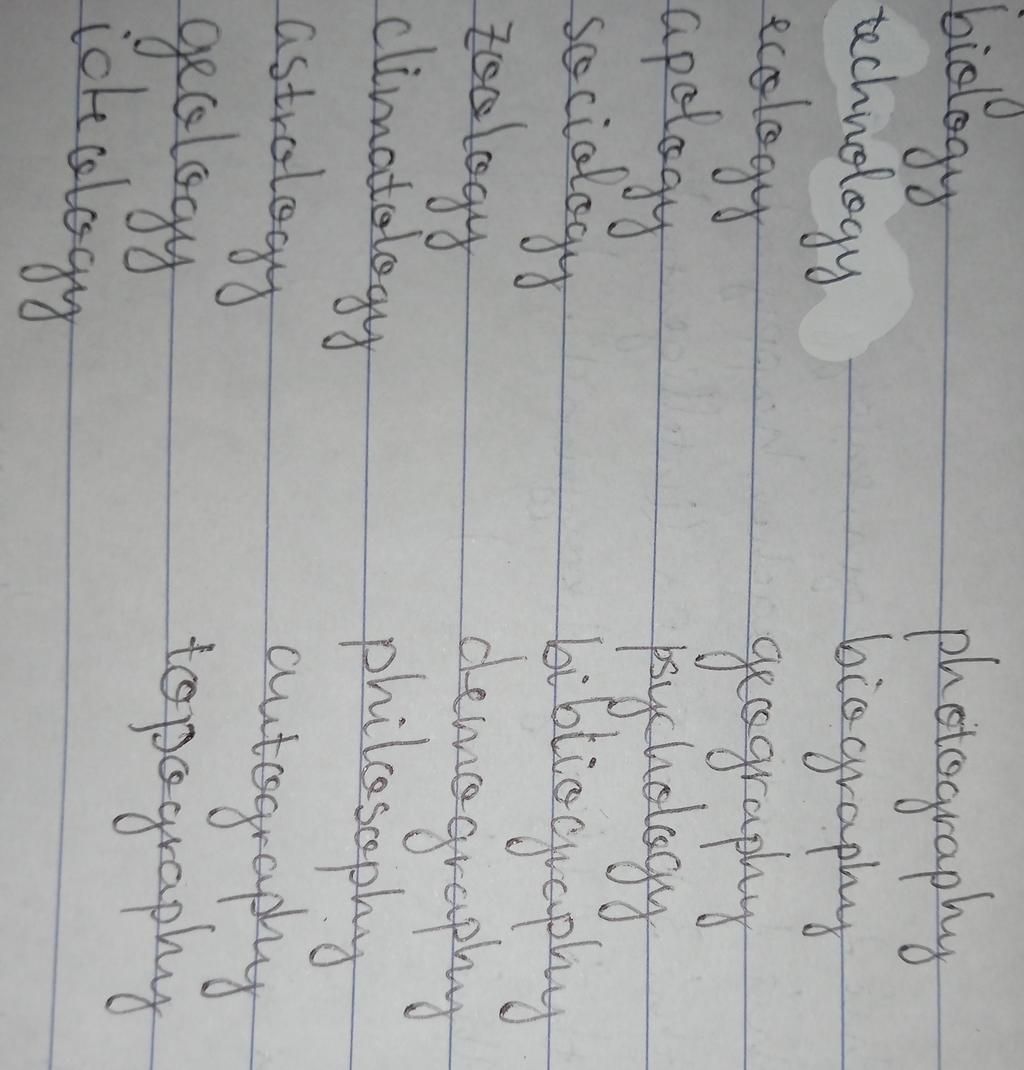 biology photography
technology biography
ecology geography
apology psychology
sociology bibliography
zoology demography
climatology philosophy
astrology autography
geology topography
icteology